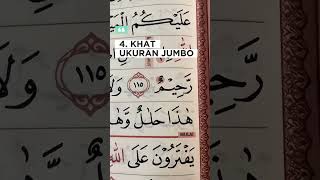 عَلَيْكُمُ الْمَيْ
68
4. KHAT
UKURAN JUMBO
رَّحِيْمٌ ١١٥ وَلَا
هٰذَا حَلٰلٌ وَّهٰ
يَفْتَرُوْنَ عَلَى اللّٰهِ